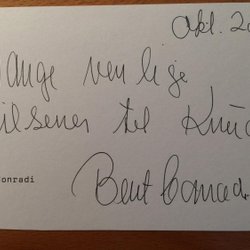 Okt. 20
ange venlige
ilsener til Knud
onradi
Bent Conrad